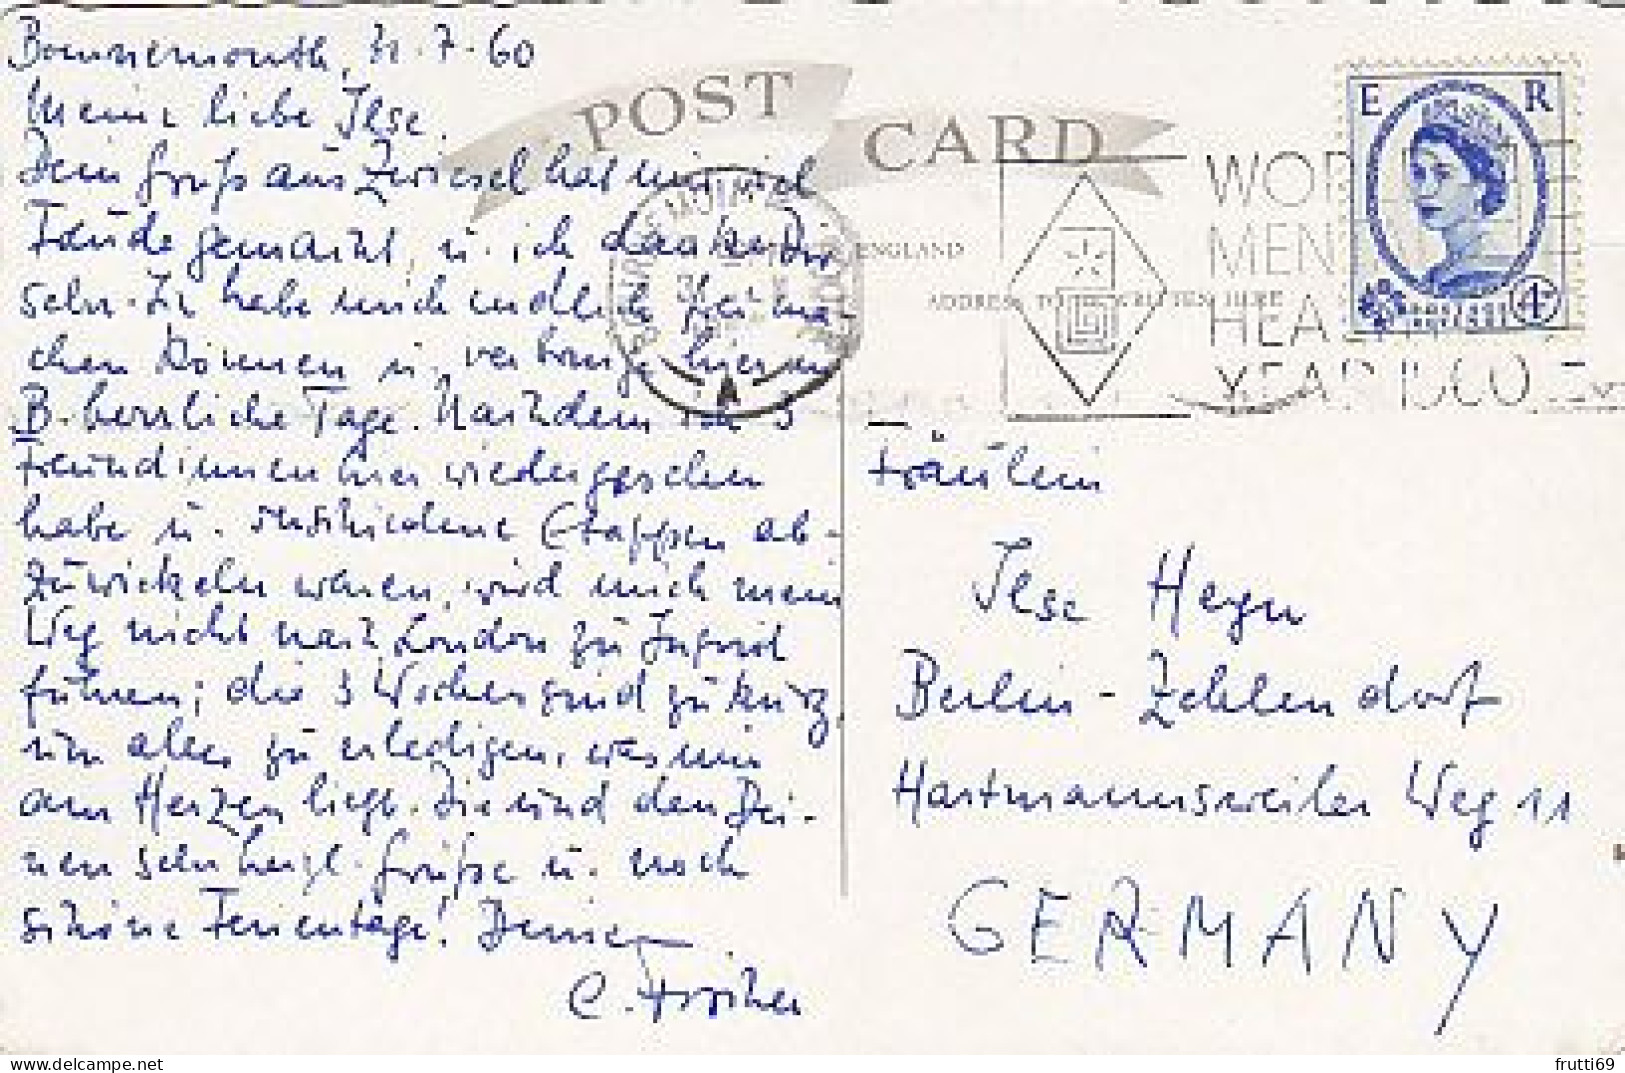 Bournemouth, 31.7.60
Meine liebe Ilse.
Dein Gruß aus Zwiesel hat mir viel
Freude gemacht, u. ich danke Dir
sehr. Ich habe mich endlich frei ma-
chen können u. verbringe hier in
B. herrliche Tage. Nachdem ich 3
Freundinnen hier wiedergesehen
habe u. verschiedene Etappen ab-
zuwickeln waren, wird mich mein
Weg nicht nach London zu Ingrid
führen; die 3 Wochen sind zu kurz,
um alles zu erledigen, was mir
am Herzen liegt. Dir und den Dei-
nen sehr herzl. Grüße u. noch
schöne Ferientage! Deine
C.
POST CARD
ENGLAND
ADDRESS TO BE WRITTEN HERE
E R
4D
WOR
MEN
HEA
YEAR 1960
A
Fräulein
Ilse Heyn
Berlin-Zehlendorf
Hartmannsweiler Weg 11
GERMANY
delcampe.net
frutti69